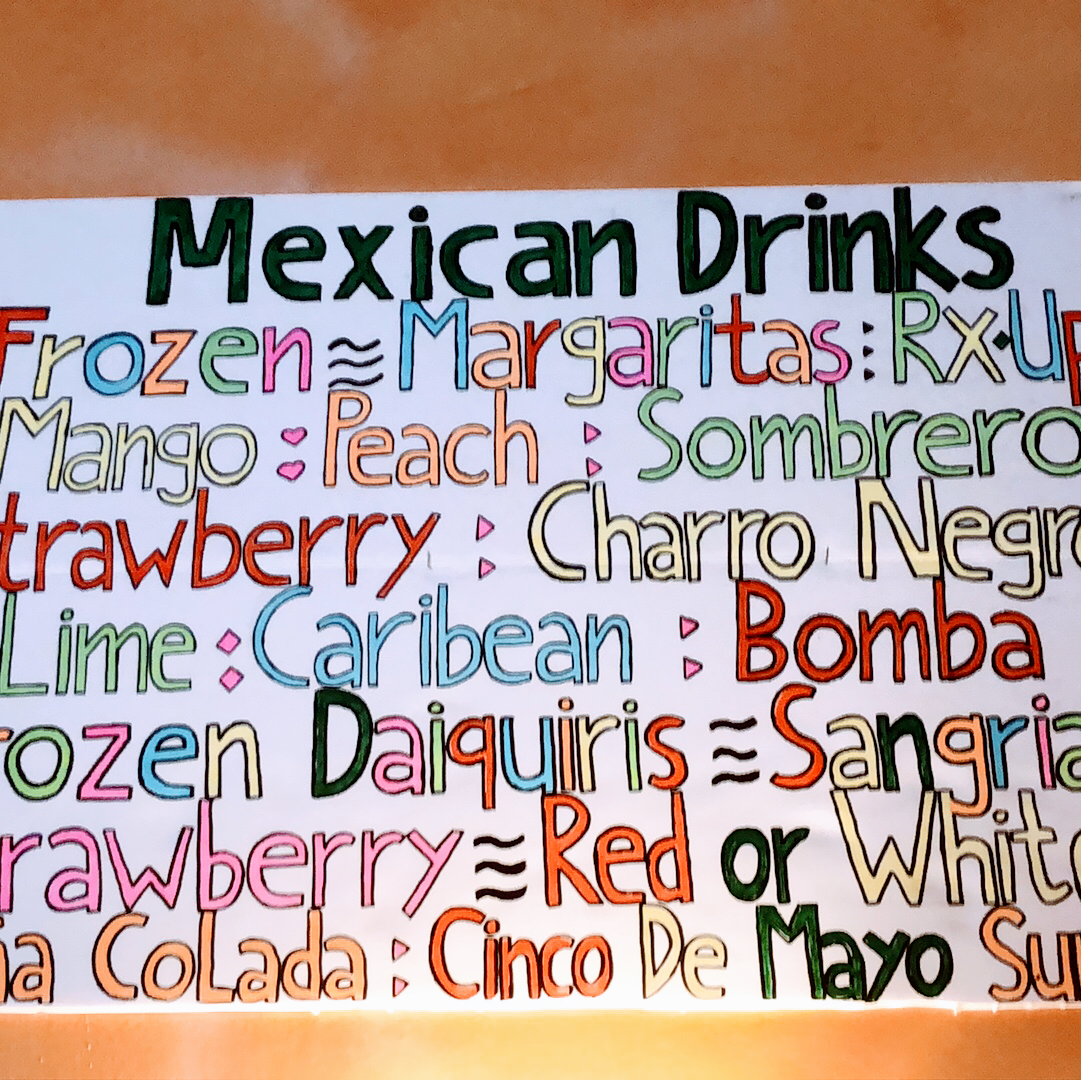 Mexican Drinks
Frozen Margaritas Rx-Up
Mango : Peach : Sombrero
trawberry : Charro Negro
Lime : Caribean : Bomba
rozen Daiquiris Sangria
rawberry Red or White
ia CoLada : Cinco De Mayo Su